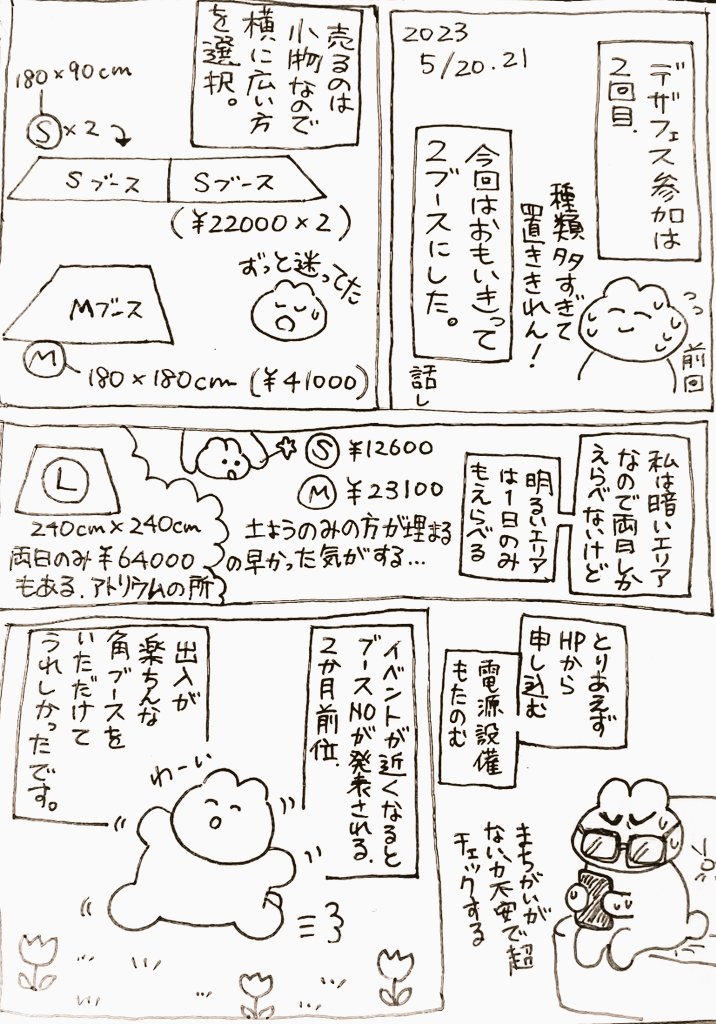 2023
5/20.21
デザフェス参加は
2回目.
種類多すぎて
置ききれん!
前回
今回はおもいきって
2ブースにした。
話し
売るのは
小物なので
横に広い方
を選択。
180×90cm
S×2
Sブース
Sブース
(¥22000×2)
ずっと迷ってた
Mブース
M
180×180cm (¥41000)
私は暗いエリア
なので両日しか
えらべないけど
明るいエリア
は1日のみ
もえらべる
S ¥12600
M ¥23100
土ようのみの方が埋まる
の早かった気がする…
L
240cm×240cm
両日のみ¥64000
もある.アトリウムの所
とりあえず
HPから
申し込む
電源設備
もたのむ
まちがいが
ないか不安で超
チェックする
イベントが近くなると
ブースNOが発表される.
2か月前位.
出入が
楽ちんな
角ブースを
いただけて
うれしかったです。
わーい